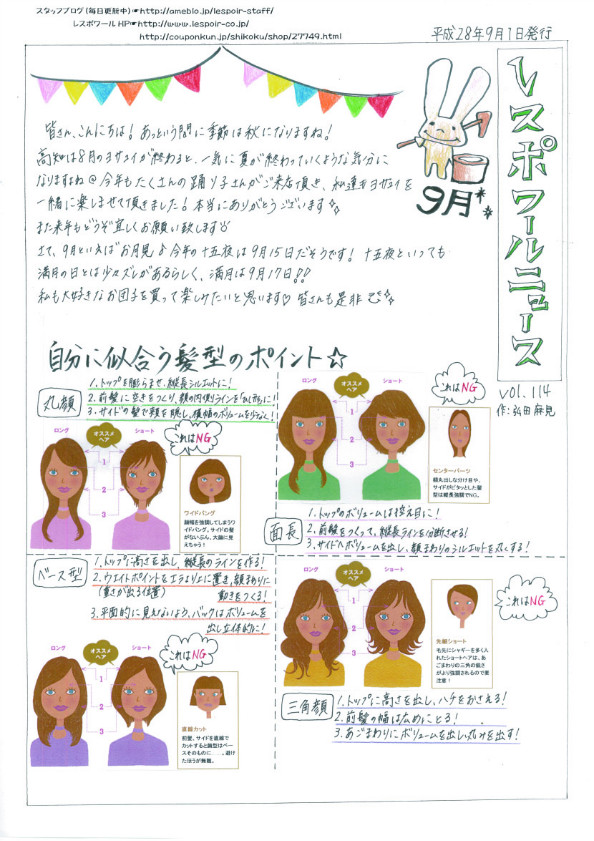 スタッフブログ(毎日更新中)☛http://ameblo.jp/lespoir-staff/
レスポワールHP☛http://www.lespoir-co.jp/
http://couponkun.jp/shikoku/shop/27749.html
平成28年9月1日発行
レスポワールニュース
9月
vol.114
作:弘田 麻見
皆さん、こんにちは!あっという間に季節は秋になりますね!
高知は8月のヨサコイが終わると、一気に夏が終わっていくような気分に
なりますね 今年もたくさんの踊り子さんがご来店頂き、私達もヨサコイを
一緒に楽しませて頂きました!本当にありがとうございます☆
また来年もどうぞ宜しくお願い致します
さて、9月といえば"お月見♪今年の十五夜は9月15日だそうです!十五夜といっても
満月の日とは少々ズレがあるらしく、満月は9月17日!!
私も大好きなお団子を買って楽しみたいと思います♡皆さんも是非
自分に似合う髪型のポイント☆
丸顔
1.トップを膨らませ、縦長シルエットに!
2.前髪に空きをつくり、額の内側ラインを「ひし形」に!
3.サイドの髪で頬を隠し、横幅のボリュームを少なく!
ロング
オススメヘア
ショート
1
2
3
これはNG
ワイドバング
顔幅を強調してしまうワ
イドバング。サイドの髪
がないぶん、大顔に見
えちゃう!
面長
ロング
オススメヘア
ショート
1
2
3
これはNG
センターパーツ
顔丸出しな分け目や、
サイドがピタッとした髪
型は縦長強調でNG。
1.トップのボリュームは控え目に!
2.前髪をつくって、縦長ラインを分断させる!
3.サイドへボリュームを出し、顔まわりのシルエットを丸くする!
ベース型
1.トップに高さを出し、縦長のラインを作る!
2.ウエイトポイントをエラより上に置き、顔まわりに
(重さが出る位置) 動きをつくる!
3.平面的に見えないよう、バックはボリュームを
出し立体的に!
ロング
オススメヘア
ショート
1
2
3
これはNG
直線カット
前髪、サイドを直線で
カットすると顔型はベース
そのものに……。避け
たほうが無難。
三角顔
ロング
オススメヘア
ショート
1
2
3
これはNG
先細ショート
毛先にシャギーを多く入
れたショートヘアは、あ
ごまわりの三角の鋭さ
がより強調されるので要
注意!
1.トップに高さを出し、ハチをおさえる!
2.前髪の幅は広めにとる!
3.あごまわりにボリュームを出し、丸みを出す!